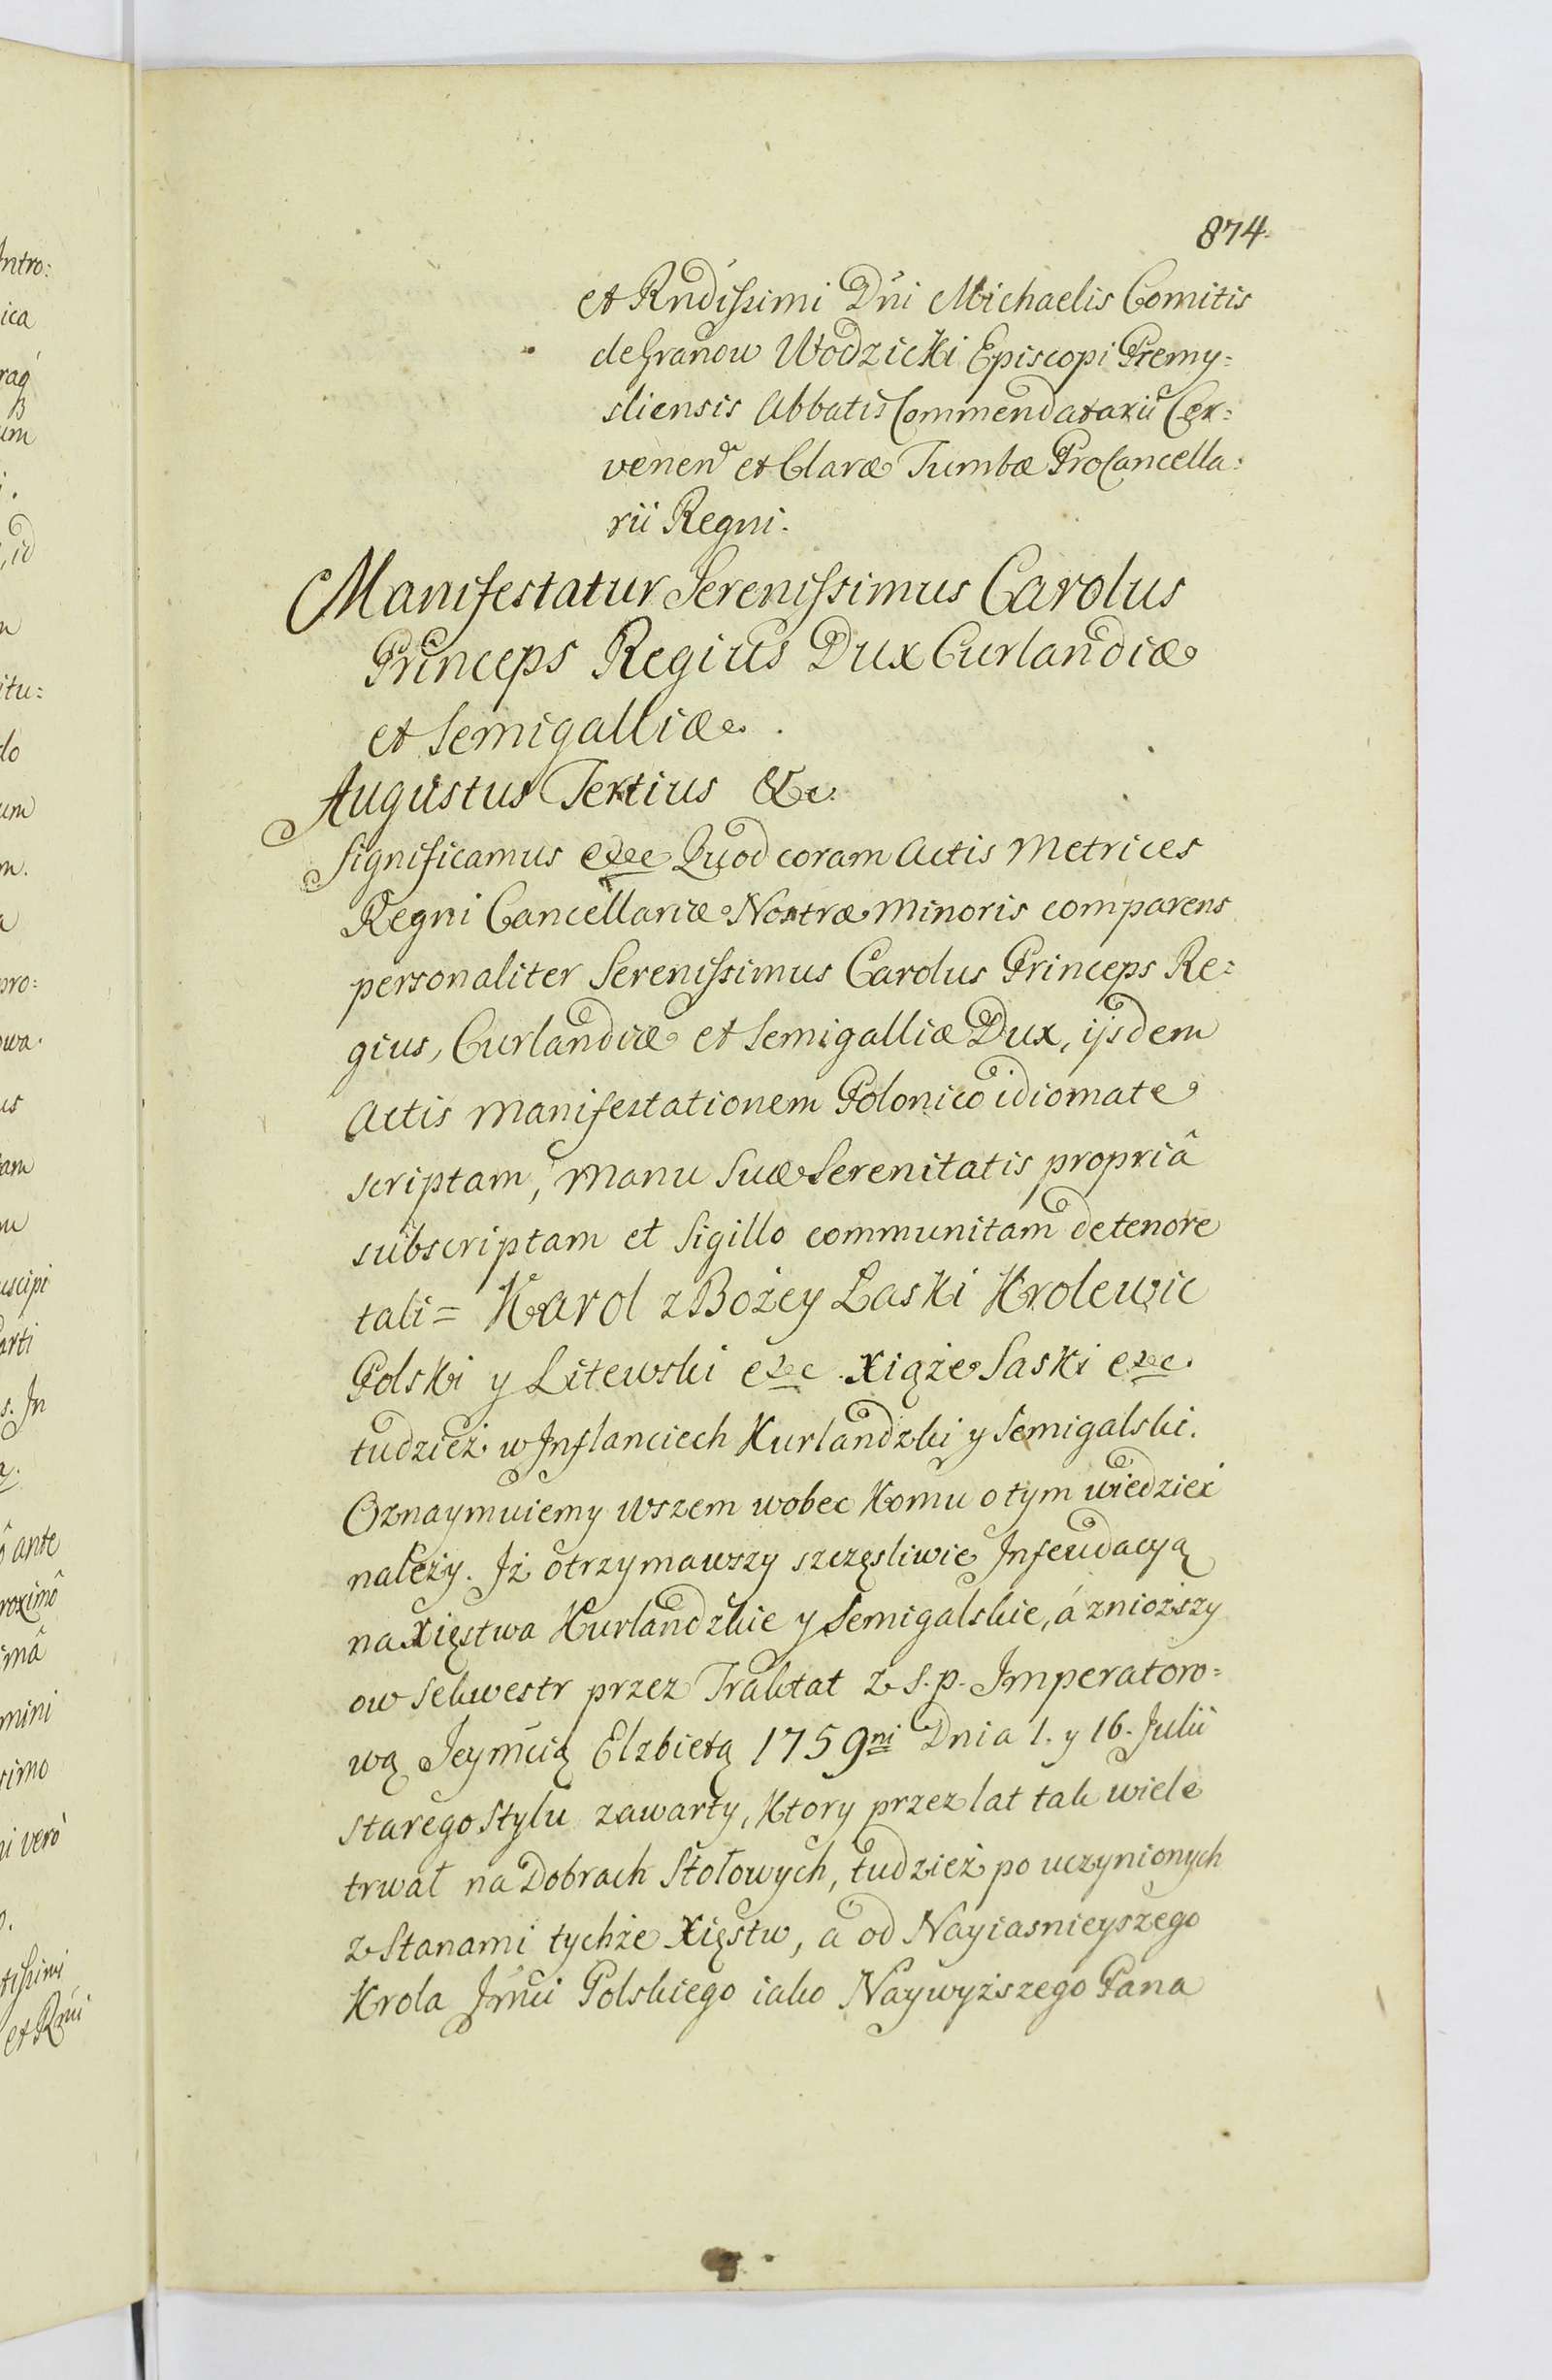 874.
et Rndissimi Dni Michaelis Comitis
de Granow Wodzicki Episcopi Premy=
sliensis Abbatis Commendatarii Cer=
venen et Claræ Tumbæ ProCancella=
rii Regni.
Manifestatur Serenissimus Carolus
Princeps Regius Dux Curlandiæ
et Semigalliæ.
Augustus Tertius &c.
Significamus etc Quod coram Actis Metrices
Regni Cancellariæ Nostræ Minoris comparens
personaliter Serenissimus Carolus Princeps Re=
gius, Curlandiæ et Semigalliæ Dux, ijsdem
Actis Manifestationem Polonico idiomate
scriptam, Manu Suæ Serenitatis propriâ
subscriptam et Sigillo communitam de tenore
tali = Karol z Bożey Łaski Krolewic
Polski y Litewski etc Xiąże Saski etc.
tudzież w Inflanciech Kurlandzki y Semigalski.
Oznaymuiemy wszem wobec Komu o tym wiedzieć
należy. Iż otrzymawszy szczęsliwie Infeudacyą
na Xięstwa Kurlandzkie y Semigalskie, á zniozszy
ow Sekwestr przez Traktat z S.p. Imperatoro=
wą Ieymcią Elzbietą 1759ni Dnia 1. y 16. Julii
starego Stylu zawarty, Ktory przez lat tak wiele
trwał na Dobrach Stołowych, tudzież po uczynionych
z Stanami tychże Xięstw, a od Nayiasnieyszego
Krola Jmci Polskiego iako Naywyższego Pana
Intro:
ica
um
id
itu:
do
um
m.
pro:
owa.
us
tam
uscipi
arti
s. In
ô ante
roximô
imâ
mini
simo
ni verò
tissimi
et Rmi